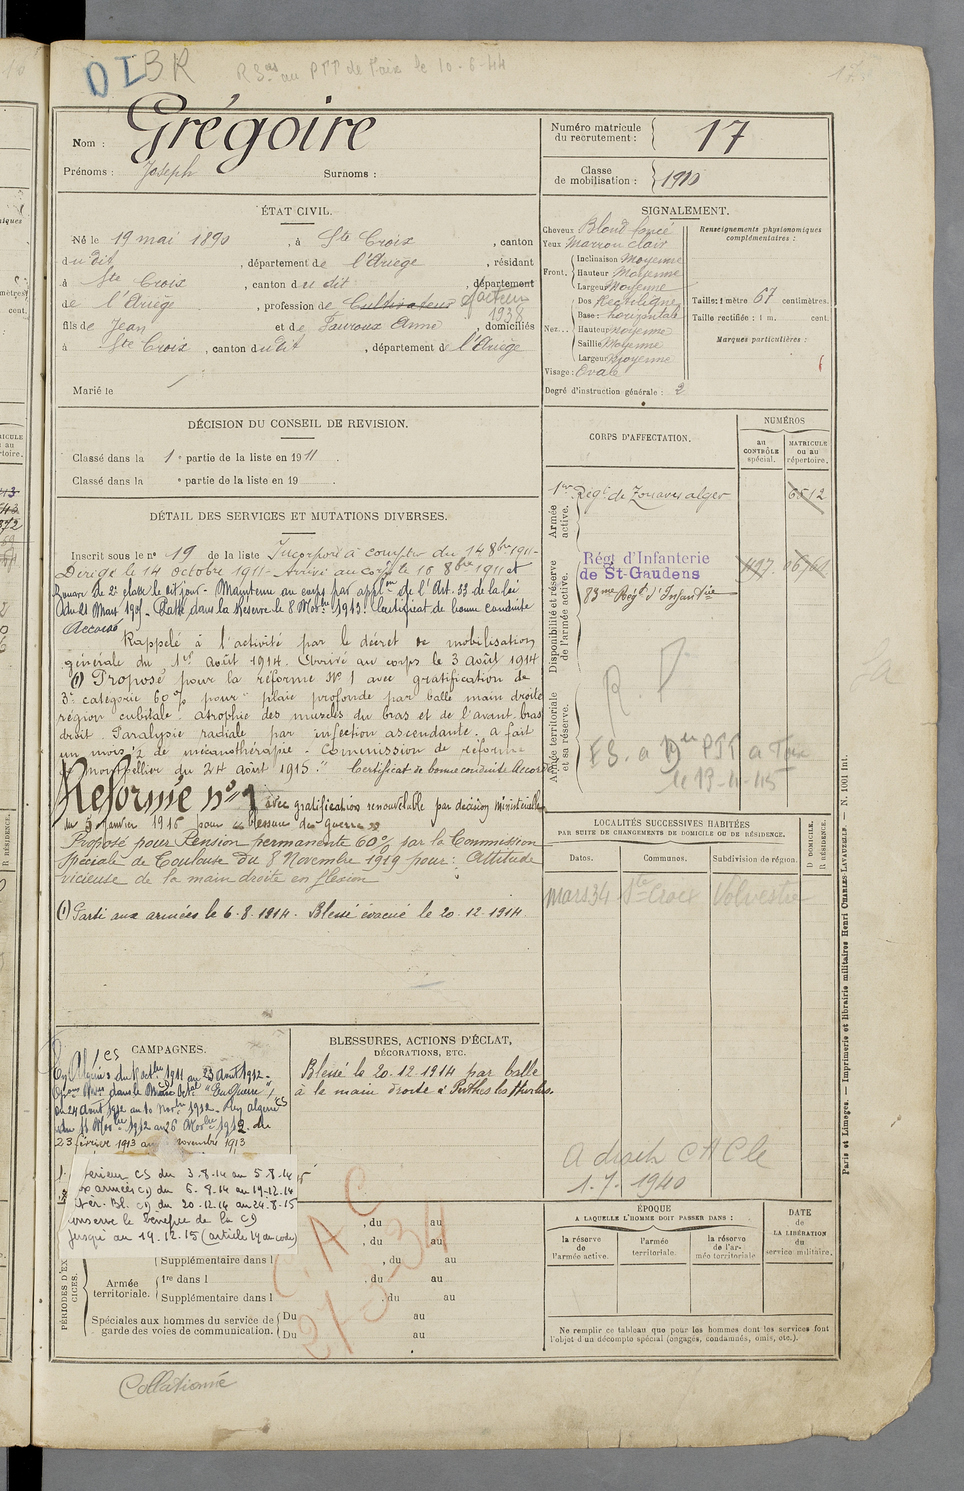 DI BR
RS as au PTT de Foix le 10-6-44
17
Nom : Grégoire
Prénoms : Joseph Surnoms :
Numéro matricule du recrutement : 17
Classe de mobilisation : 1910
ÉTAT CIVIL.
Né le 19 mai 1890, à Ste Croix, canton
dudit, département de l'Ariège, résidant
à Ste Croix, canton du dit, département
de l'Ariège, profession de Cultivateur facteur 1938
fils de Jean et de Fauroux Anne, domiciliés
à Ste Croix, canton dudit, département de l'Ariège
Marié le
SIGNALEMENT.
Cheveux Blond foncé
Yeux Marron clair
Front. Inclinaison Moyenne
Hauteur Moyenne
Largeur Moyenne
Nez... Dos Rectiligne
Base : horizontale
Hauteur Moyenne
Saillie Moyenne
Largeur Moyenne
Visage : Ovale
Degré d'instruction générale : 2
Renseignements physionomiques complémentaires :
Taille : 1 mètre 67 centimètres.
Taille rectifiée : 1 m. cent.
Marques particulières :
DÉCISION DU CONSEIL DE REVISION.
Classé dans la 1e partie de la liste en 1911.
Classé dans la e partie de la liste en 19
CORPS D'AFFECTATION.
NUMÉROS
au CONTRÔLE spécial.
MATRICULE OU AU répertoire.
Armée active.
1er Régt de Zouaves alger 6512
Disponibilité et réserve de l'armée active.
Régt d'Infanterie
de St-Gaudens
83me Régt d'Infanterie
Armée territoriale et sa réserve.
DÉTAIL DES SERVICES ET MUTATIONS DIVERSES.
Inscrit sous le n° 19 de la liste Incorporé à compter du 14 8bre 1911-
Dirigé le 14 octobre 1911- Arrivé au corps le 16 8bre 1911 et
Zouave de 2e classe le dit jour. Maintenu au corps par applon de l'Art. 33 de la loi
du 21 Mars 1905. Passé dans la Réserve le 8 Nobre 1913. Certificat de bonne conduite
Accordé
Rappelé à l'activité par le décret de mobilisation
générale du 1er août 1914. Arrivé au corps le 3 août 1914
(1) Proposé pour la réforme N° 1 avec gratification de
3e catégorie 60% pour "plaie profonde par balle main droite
région cubitale. atrophie des muscles du bras et de l'avant-bras
droit. Paralysie radiale par infection ascendante. a fait
un mois ½ de mécanothérapie - Commission de réforme
de montpellier du 24 août 1915." Certificat de bonne conduite Accordé
Réformé n° 1 avec gratification renouvelable par décision ministérielle
du 5 janvier 1916 pour "blessure de guerre"
Proposé pour Pension permanente 60% par la Commission
Spéciale de Toulouse du 8 Novembre 1919 pour : Attitude
vicieuse de la main droite en flexion
(1) Parti aux armées le 6-8-1914. Blessé évacué le 20-12-1914.
LOCALITÉS SUCCESSIVES HABITÉES
PAR SUITE DE CHANGEMENTS DE DOMICILE OU DE RÉSIDENCE.
Dates. Communes. Subdivision de région. D DOMICILE. R RÉSIDENCE.
mars 34 Ste Croix Volvestre
A droit CACle
1-7-1940
CAMPAGNES.
23 février 1913 au novembre 1913
térieur CS du 3.8.14 au 5.8.14
aux armées CD du 6-8-14 au 19-12-14
Intér. Bl. CD du 20.12.14 au 24-8-15
conserve le bénéfice de la CD
jusqu'au 19.12.15 (article 14 du code)
BLESSURES, ACTIONS D'ÉCLAT,
DÉCORATIONS, ETC.
Blessé le 20-12-1914 par balle
à la main droite à Perthes les Hurlus.
CAC
27-3-34
, du au
, du au
Supplémentaire dans l , du au
Armée territoriale. 1re dans l , du au
Supplémentaire dans l , du au
PÉRIODES D'EXERCICES.
Spéciales aux hommes du service de garde des voies de communication. Du au
Du au
ÉPOQUE
A LAQUELLE L'HOMME DOIT PASSER DANS :
la réserve de l'armée active.
l'armée territoriale.
la réserve de l'armée territoriale
DATE de LA LIBÉRATION du service militaire.
Ne remplir ce tableau que pour les hommes dont les services font
l'objet d'un décompte spécial (engagés, condamnés, omis, etc.).
Paris et Limoges. — Imprimerie et librairie militaires Henri CHARLES-LAVAUZELLE. — N. 1001 Int.
Collationné